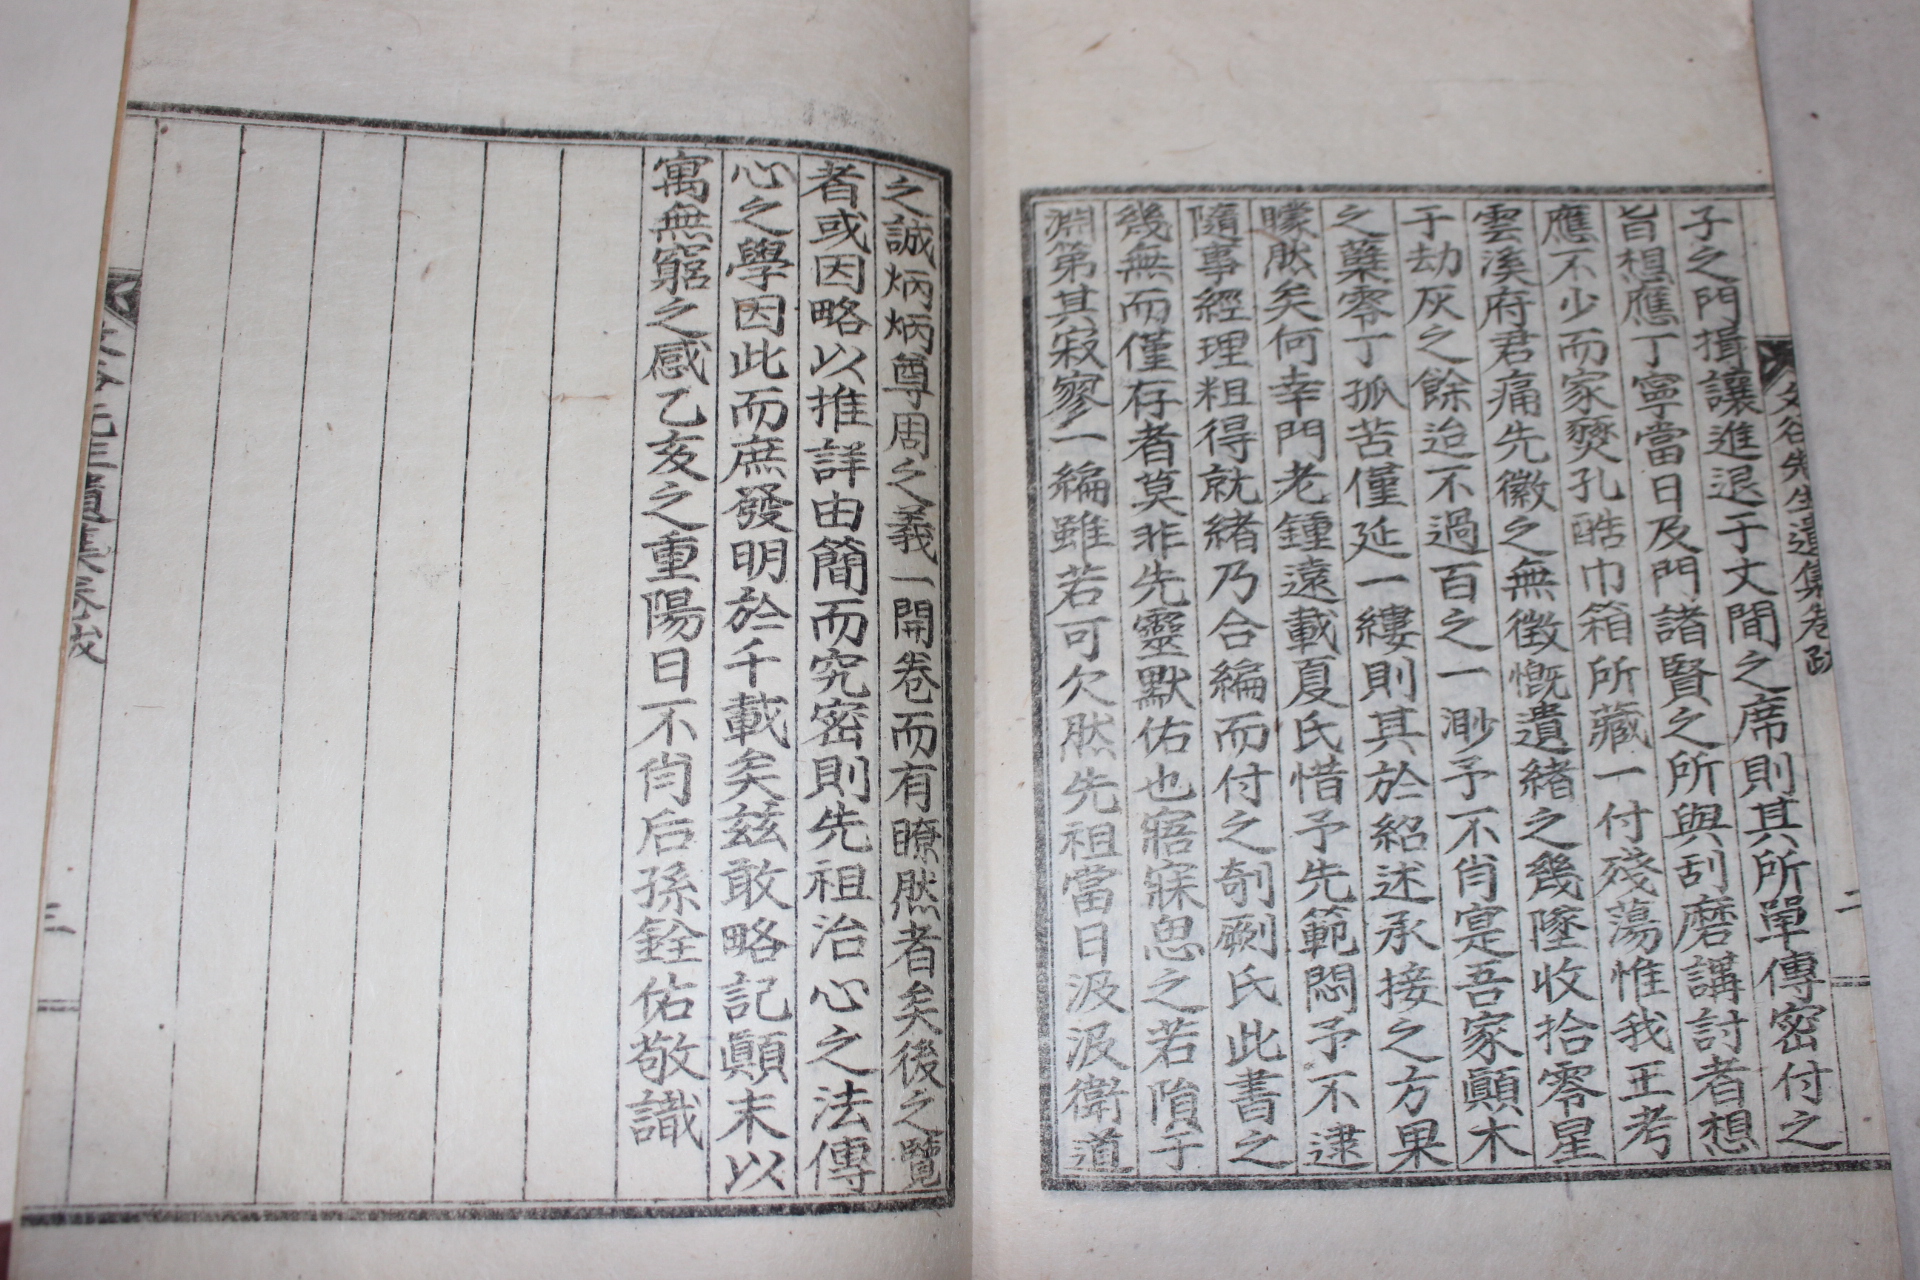 子之門揖讓進退于丈間之席則其所單傳密付之
旨想應丁寧當日及門諸賢之所與刮磨講討者想
應不少而家燹孔酷巾箱所藏一付殘蕩惟我王考
雲溪府君痛先徽之無徵慨遺緖之幾墜收拾零星
于劫灰之餘迨不過百之一渺予不肖寔吾家顚木
之蘖零丁孤苦僅延一縷則其於紹述承接之方果
矇然矣何幸門老鍾遠載夏氏惜予先範悶予不逮
隨事經理粗得就緒乃合編而付之剞劂氏此書之
幾無而僅存者莫非先靈默佑也寤寐思之若隕于
淵第其寂寥一編雖若可欠然先祖當日汲汲衛道
文谷先生遺集卷跋
二
之誠炳炳尊周之義一開卷而有瞭然者矣後之覽
者或因略以推詳由簡而究密則先祖治心之法傳
心之學因此而庶發明於千載矣玆敢略記顚末以
寓無窮之感乙亥之重陽日不肖后孫銓佑敬識
文谷先生遺集卷跋
三